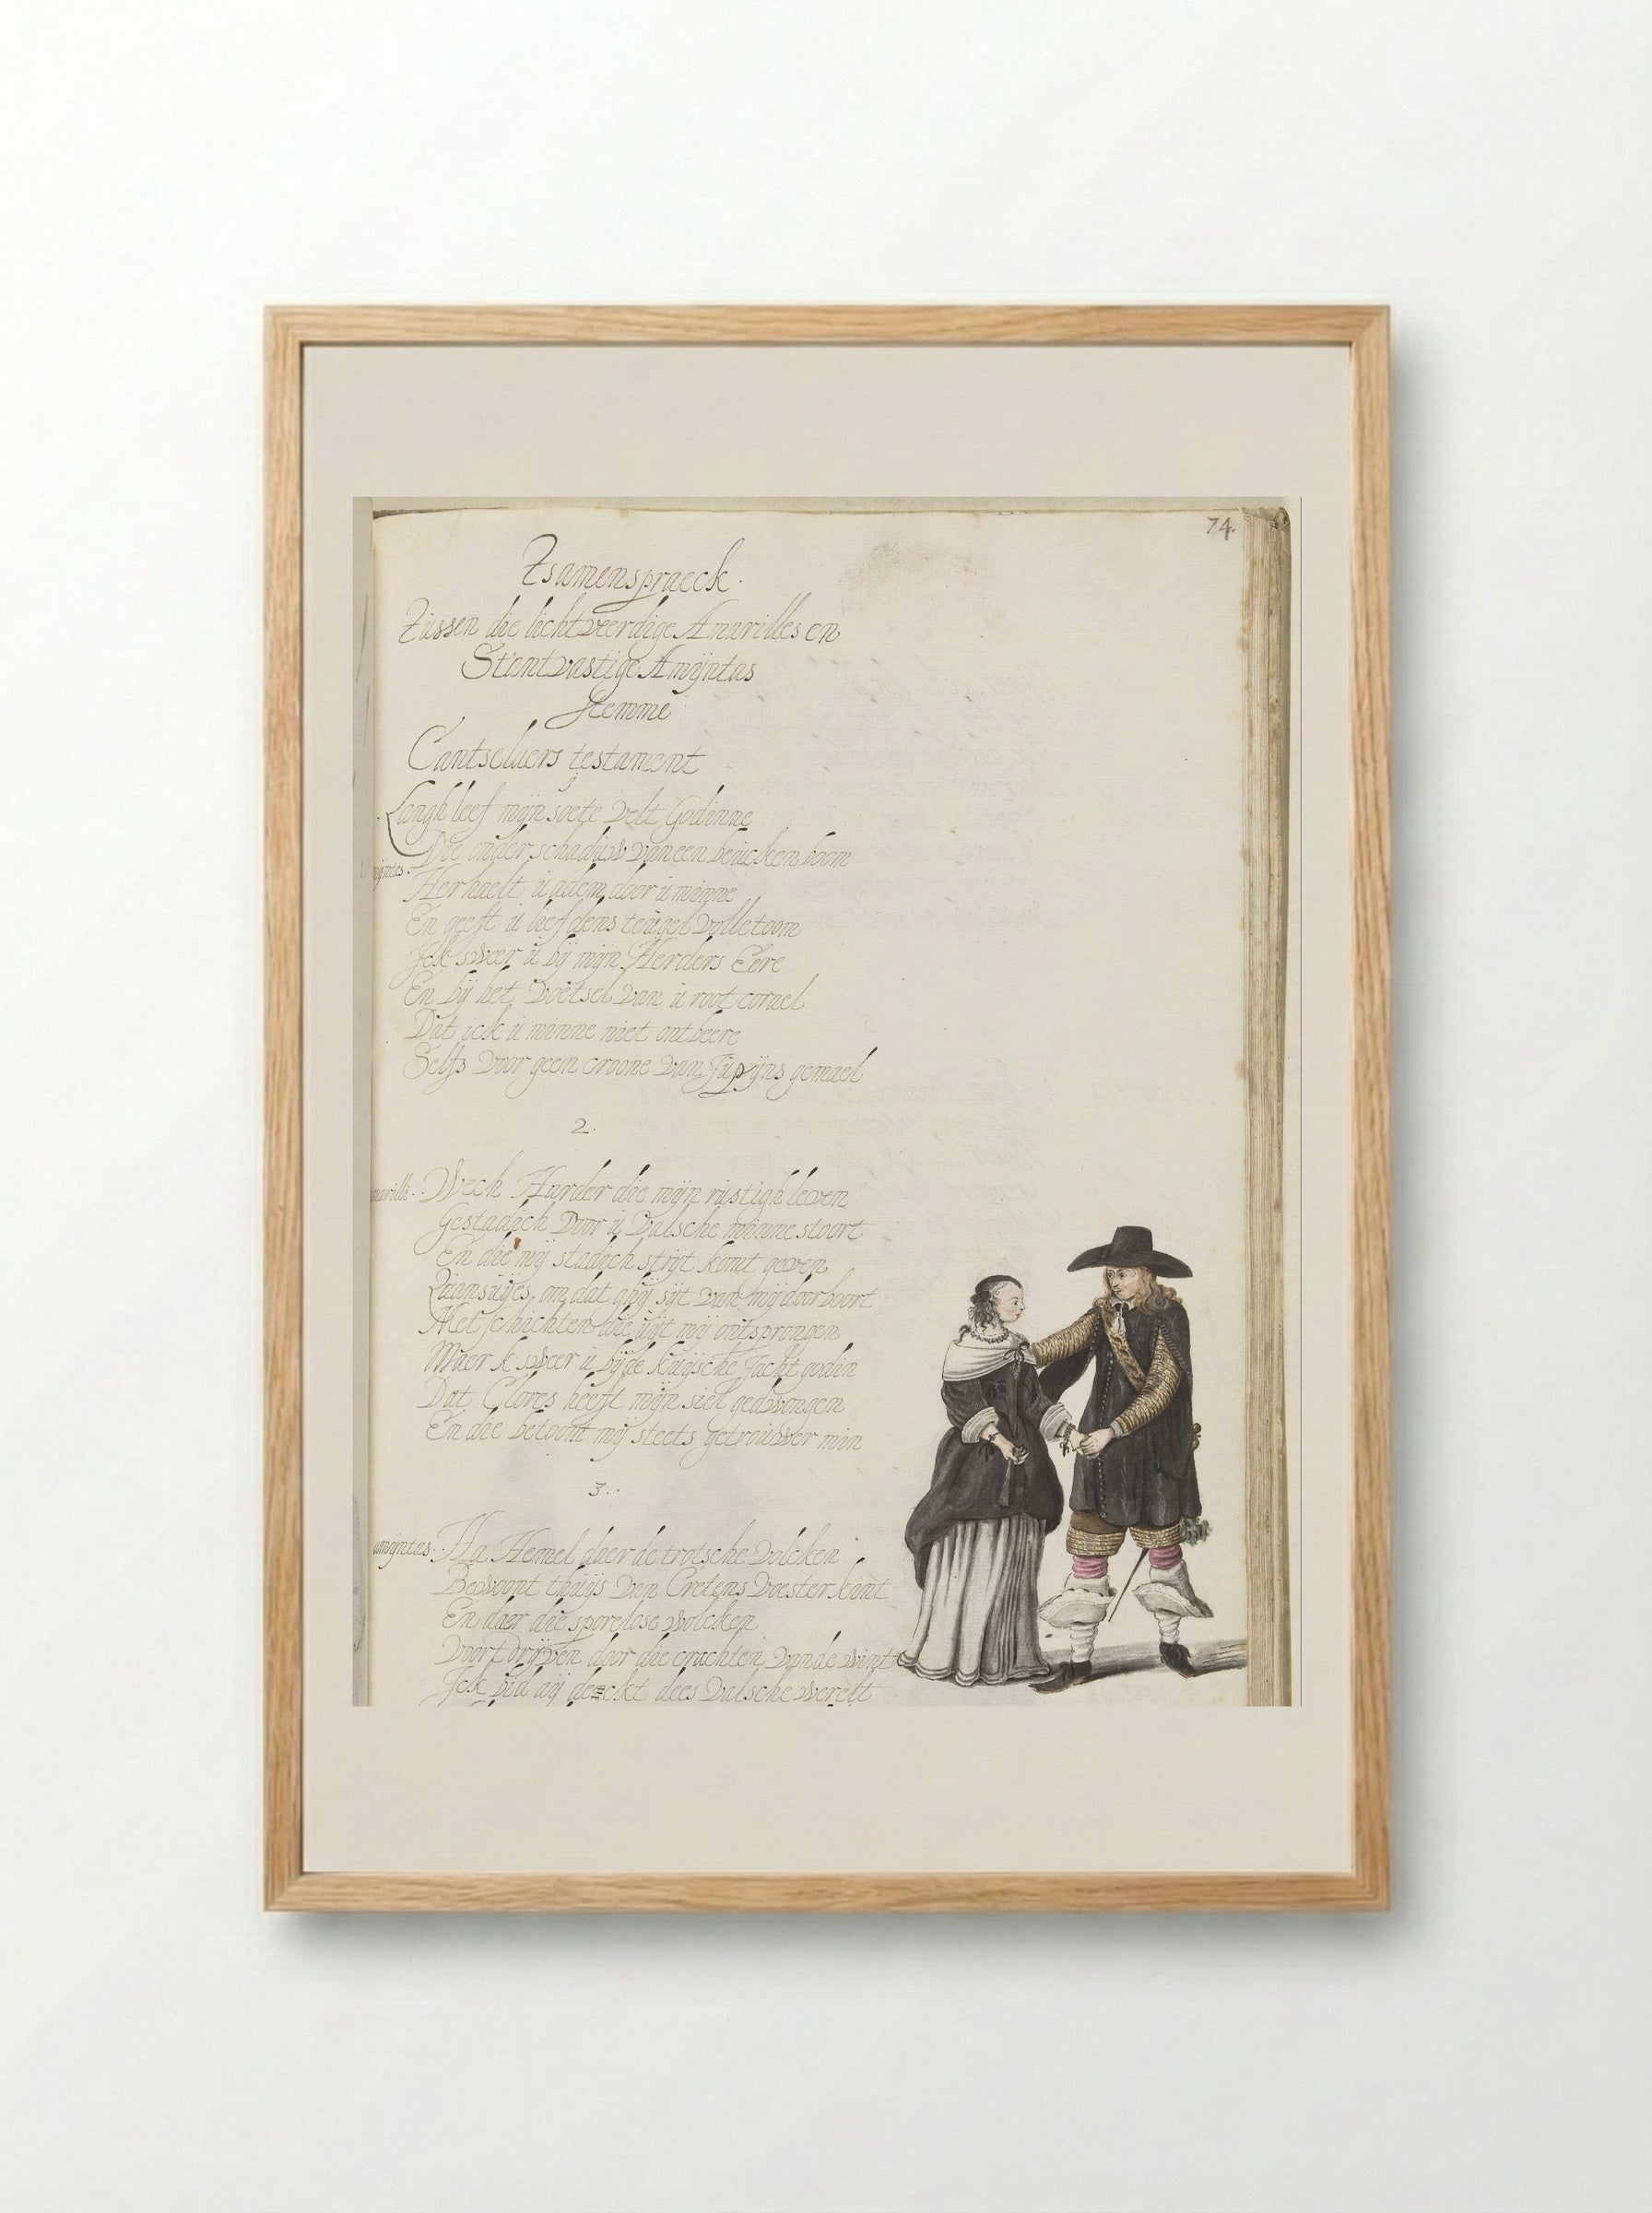 74.
Tsamenspraeck.
Tussen die lichtveerdige Amarilles en
Stantvastige Amÿntas
Stemme
Cantselaers testament
Langh leef mÿn soete Velt Godinne
Die onder schaduw van een beucken boom
Herhaelt u adem door u minne
En geeft u liefdens teugel volle toom
Ick sweer u bÿ mÿn Herders Eere
En bÿ het Voetsel van u root corael
Dat ick u minne niet ontbeere
Selfs voor geen croone van Jupÿns gemael
2.
marilli. Wech Harder die mÿn rustigh leven
Gestadich Door u Valsche minne stoort
En die mÿ stadich strÿt komt geven
om dat ghÿ sÿt van mÿ doorboort
Met schichten die uÿt mÿ ontsprongen
Maer k sweer u bÿde kuÿsche Jacht godin
Dat Clores heeft mÿn siel gedwongen
En die betoont mÿ steets getrouwer min
3.
amÿntas. Ha Hemel daer de trotsche Volcken
Bewoont thuÿs van Cretens Voester kint
En daer die sporelose wolcken
Voort drÿven door die crachten vande wint
Ick bid ghÿ deckt dees Valsche werelt